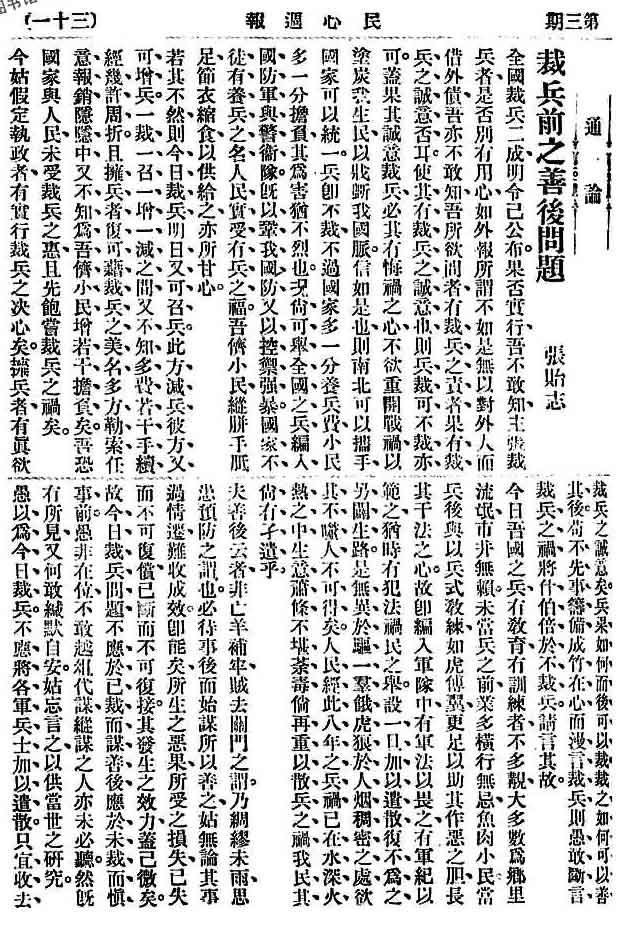 第三期
民心週報
(三十一)
通論
裁兵前之善後問題
張貽志
全國裁兵二成明令已公布果否實行吾不敢知主張裁
兵者是否別有用心如外報所謂不如是無以對外人而
借外債吾亦不敢知吾所欲問者有裁兵之責者果有裁
兵之誠意否耳使其有裁兵之誠意也則兵裁可不裁亦
可蓋果其誠意裁兵必其有悔禍之心不欲重開戰禍以
塗炭我生民以戕斲我國脈信如是也則南北可以攜手
國家可以統一兵卽不裁不過國家多一分養兵費小民
多一分擔負其爲害猶不烈也况尙可舉全國之兵編入
國防軍與警衞隊旣以鞏我國防又以控禦强暴國家不
徒有養兵之名人民實受有兵之福吾儕小民縫胼手胝
足節衣縮食以供給之亦所甘心
若其不然則今日裁兵明日又可召兵此方減兵彼方又
可增兵一裁一召一增一減之間又不知多費若干手續
經幾許周折且擁兵者復可藉裁兵之美名多方勒索任
意報銷隱隱中又不知爲吾儕小民增若干擔負矣吾恐
國家與人民未受裁兵之惠且先飽嘗裁兵之禍矣
今姑假定執政者有實行裁兵之決心矣擁兵者有眞欲
裁兵之誠意矣兵果如何而後可以裁裁之如何可以善
其後苟不先事籌備成竹在心而漫言裁兵則愚敢斷言
裁兵之禍將什伯倍於不裁兵請言其故
今日吾國之兵有敎育有訓練者不多覯大多數爲鄉里
流氓市井無賴未當兵之前業多橫行無忌魚肉小民當
兵後與以兵式敎練如虎傅翼更足以助其作惡之胆長
其干法之心故卽編入軍隊中有軍法以畏之有軍紀以
範之猶時有犯法禍民之舉設一旦加以遣散復不爲之
另闢生路是無異於驅一羣餓虎狼於人烟稠密之處欲
其不噬人不可得矣人民經此八年之兵禍已在水深火
熱之中生意蕭條不堪荼毒倘再重以散兵之禍我民其
尙有孑遺乎
夫善後云者非亡羊補牢賊去關門之謂乃綢繆未雨思
患預防之謂也必待事後而始謀所以善之姑無論其事
過情遷難收成效卽能矣所生之惡果所受之損失已失
而不可復償已斷而不可復接其發生之效力蓋已微矣
故今日裁兵問題不應於已裁而謀善後應於未裁而愼
事前愚非在位不敢越俎代謀縫謀之人亦未必聽然旣
有所見又何敢緘默自安姑忘言之以供當世之研究
愚以爲今日裁兵不應將各軍兵士加以遣散只宜收去